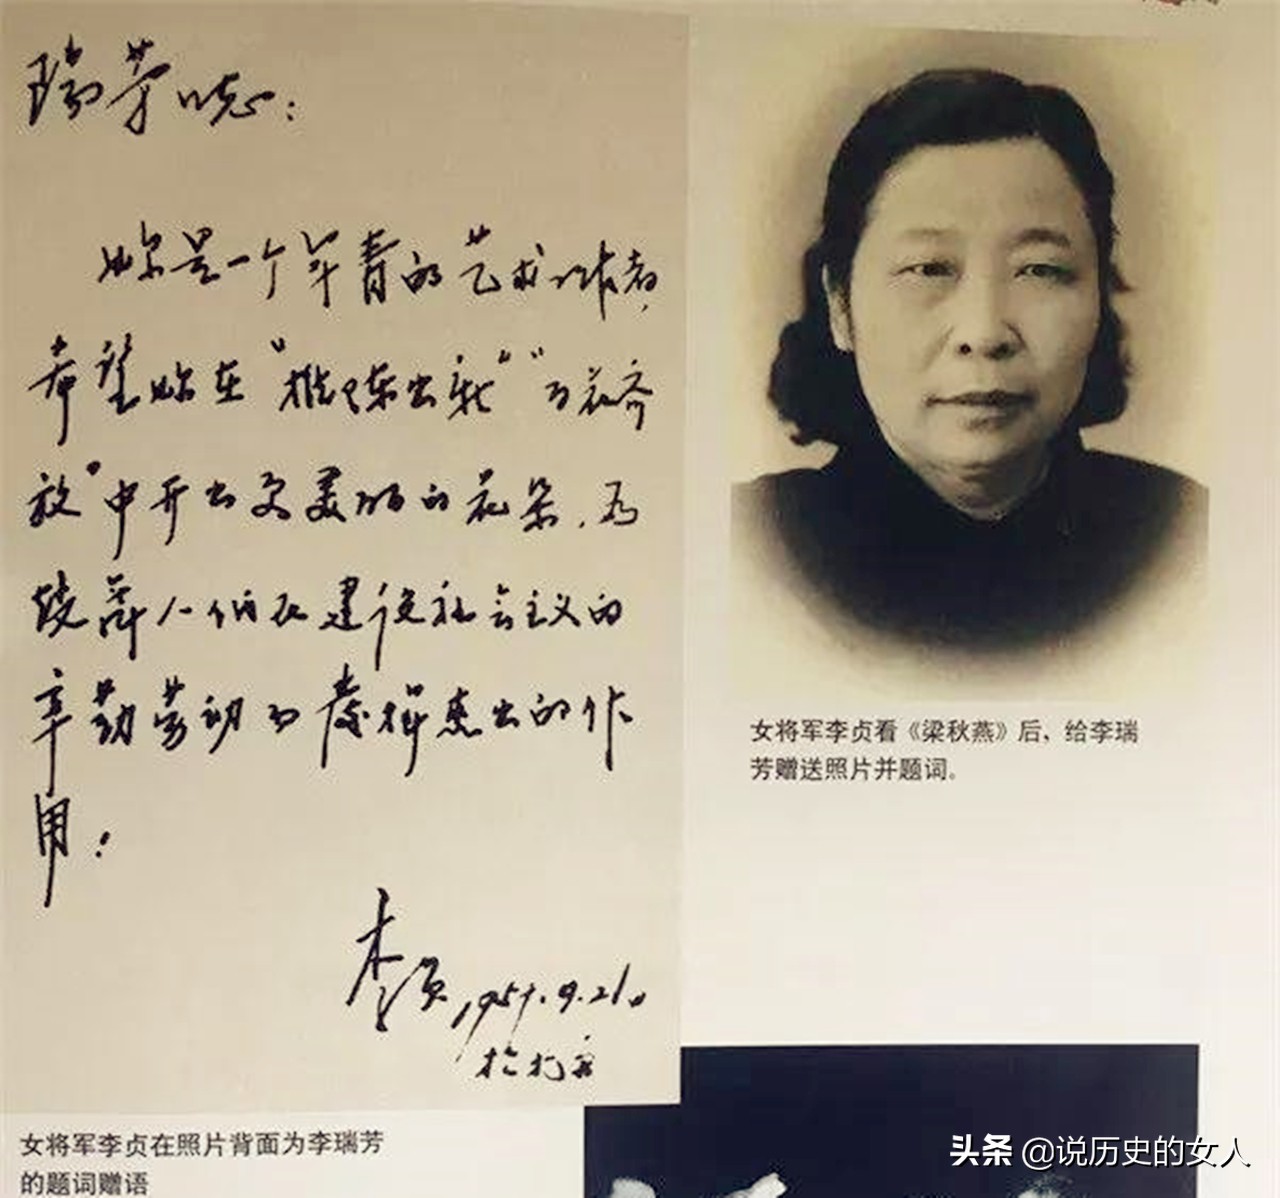 瑞芳同志：
妳是一个年青的艺术工作者，
希望妳在“推陈出新”“百花齐
放”中开出更美丽的花朵，为
鼓舞人们在建设社会主义的
辛勤劳动而发挥杰出的作
用！
李贞 1957.9.21日
于北京
女将军李贞看《梁秋燕》后，给李瑞
芳赠送照片并题词。
女将军李贞在照片背面为李瑞芳
的题词赠语
头条 @说历史的女人